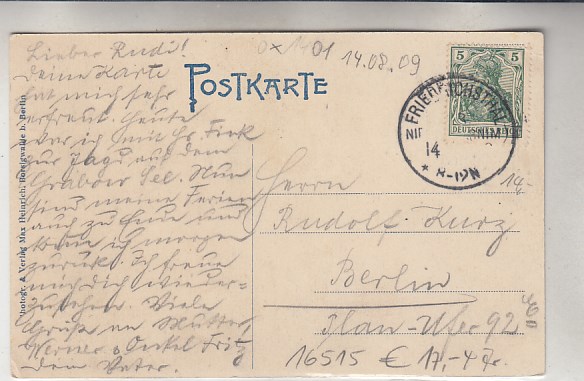 Lieber Rudi!
Deine Karte
hat mich sehr
erfreut. Heute
war ich mit Hr. Fink
zur Jagd auf dem
Grabow See. Nun
sind meine Ferien
auch zu Ende und
komm ich morgen
zurück. Ich freue
mich Dich wieder-
zusehen. Viele
Grüße an Mutter,
Werner u. Onkel Fritz
dein Vater.
Photogr. & Verlag Max Heinrich, Borsigwalde b. Berlin
0x1401
14.08.09
POSTKARTE
5 5
DEUTSCHES REICH
FRIEDRICHSTHAL
NIEDERBARNIM
14
* 8-12N
14,-
Herrn
Rudolf Kurz
Berlin
Plan-Ufer 92
16515 €